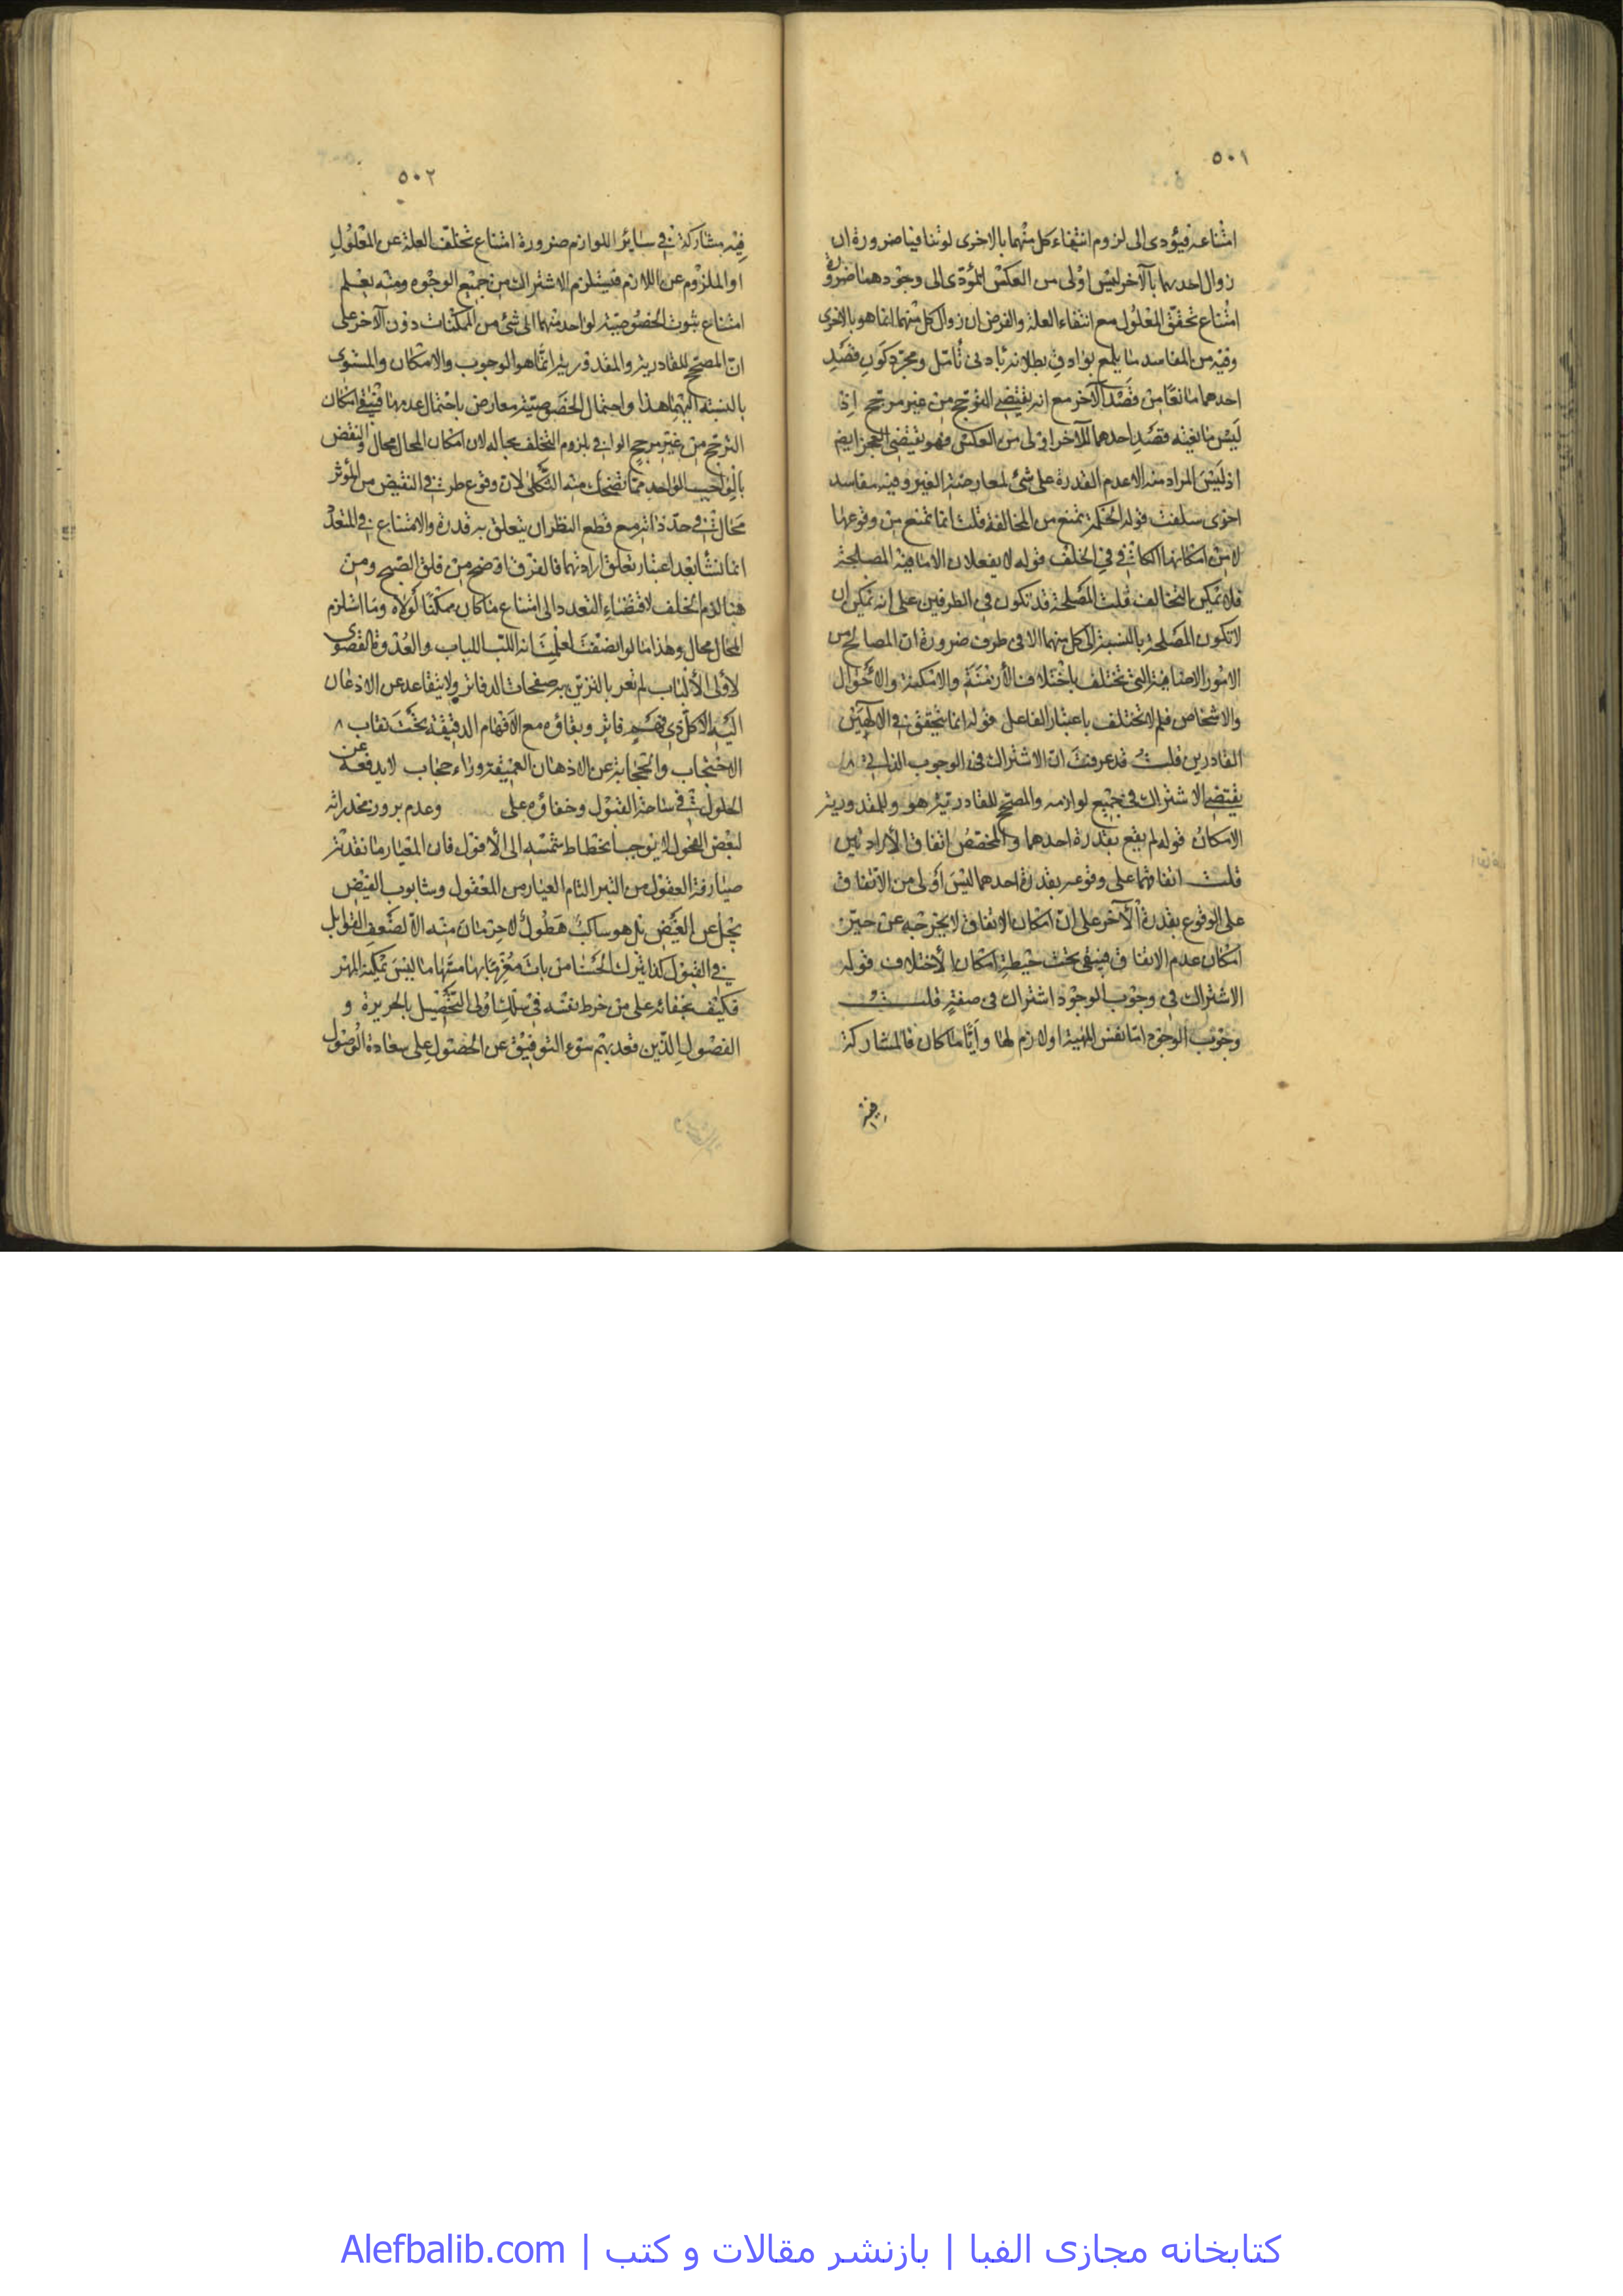 ٥٠١
امتناعه فيؤدى الى لزوم انتفاء كل منهما بالاخرى لو تنافيا ضرورة ان
زوال احدهما بالآخر ليس اولى من العكس المؤدى الى وجودهما ضرورة
امتناع تحقق المعلول مع انتفاء العلة والفرض ان زوال كل منهما انما هو بالاخرى
وفيه من المفاسد ما يلمع بوادى بطلانه بادنى تأمل ومجرد كون قصد
احدهما مانعا من قصد الآخر مع انه يقتضى الترجح من غير مرجح اذ
ليس مانعية قصد احدهما للآخر اولى من العكس فهو يقتضى العجز ايض
اذ ليس المراد منه الا عدم القدرة على شئ لمعارضة الغير وفيه مفاسد
اخرى سلفت قوله الحكمة تمنع من المخالفة قلت انما تمنع من وقوعها
لا من امكانها الكافى فى الخلف قوله لا يفعلان الا ما فيه المصلحة
فلا يمكن التخالف قلت المصلحة قد تكون فى الطرفين على انه يمكن ان
لا تكون المصلحة بالنسبة الى كل منهما الا فى طرف ضرورة ان المصالح من
الامور الاضافية التى تختلف باختلاف الأزمنة والامكنة والاحوال
والاشخاص فلم لا تختلف باعتبار الفاعل قوله انما يتحقق فى الالهين
القادرين قلت قد عرفت ان الاشتراك فى الوجوب الذاتى
يقتضى الاشتراك فى جميع لوازمه والمصحح للقادرية هو وللمقدورية
الامكان قوله لم يقع بقدرة احدهما والمخصص اتفاق الارادتين
قلت اتفاقهما على وقوعه بقدرة احدهما ليس اولى من الاتفاق
على الوقوع بقدرة الآخر على ان امكان الاتفاق لا يخرجه عن حيز
امكان عدم الاتفاق فيبقى تحت حيطة امكان الاختلاف قوله
الاشتراك فى وجوب الوجود اشتراك فى صفة قلت
وجوب الوجود اما نفس المهية او لازم لها وأيا ما كان فالمشاركة
فيه
٥٠٢
فيه مشاركة فى ساير اللوازم ضرورة امتناع تخلف العلة عن المعلول
او الملزوم عن اللازم فيستلزم الاشتراك من جميع الوجوه ومنه يعلم
امتناع ثبوت الخصوصية لواحد منهما الى شئ من الممكنات دون الآخر على
ان المصحح للقادرية والمقدورية انما هو الوجوب والامكان والمستوى
بالنسبة اليهما هذا واحتمال الخصوصية معارض باحتمال عدمها فيبقى امكان
الترجح من غير مرجح الوافى بلزوم التخلف بحاله لان امكان المحال محال والنقض
بالواجب الواحد مما تضحك منه الثكلى لان وقوع طرفى النقيض من المؤثر
محال فى حد ذاته مع قطع النظر ان يتعلق به قدرة والامتناع فى المتعدد
انما نشأ بعد اعتبار تعلق ارادتهما فالفرق اوضح من فلق الصبح ومن
هنا لزم الخلف لاقتضاء التعدد الى امتناع ما كان ممكنا لولاه وما استلزم
المحال محال وهذا ما لو انصفت لعلمت انه اللب اللباب والعدوة القصوى
لأولى الألباب لم تعر بالتزيين به صفحات الدفاتر ولا يتقاعد عن الاذعان
اليه الا كل ذى فاتر وبقاؤه مع الافهام الدقيقة تحت نقاب
الاحتجاب واحتجابه عن الاذهان العميقة وراء حجاب لا يدفعه عن
الحلول فى ساحة القبول وخفاؤه على وعدم بروز مخدراته
لبعض الفحول لا يوجب انحطاط شمسه الى الأفول فان المعيار ما نقدته
صيارفة العقول من التبر التام العيار من المعقول وشابوب الفيض
يجل عن الغيض بل هو ساكب هطول لا حرمان منه الا لضعف القوابل
فى القبول كذا يترك الحسنا من بات مغرما بها منتهاها ليس يمكنه المهر
فكيف بخفائه على من خرط نفسه فى سلك اولى التحصيل بالجريرة و
الفضول الذين قعد بهم سوء التوفيق عن الحصول على سعادة الوصول
كتابخانه مجازی الفبا | بازنشر مقالات و کتب | Alefbalib.com